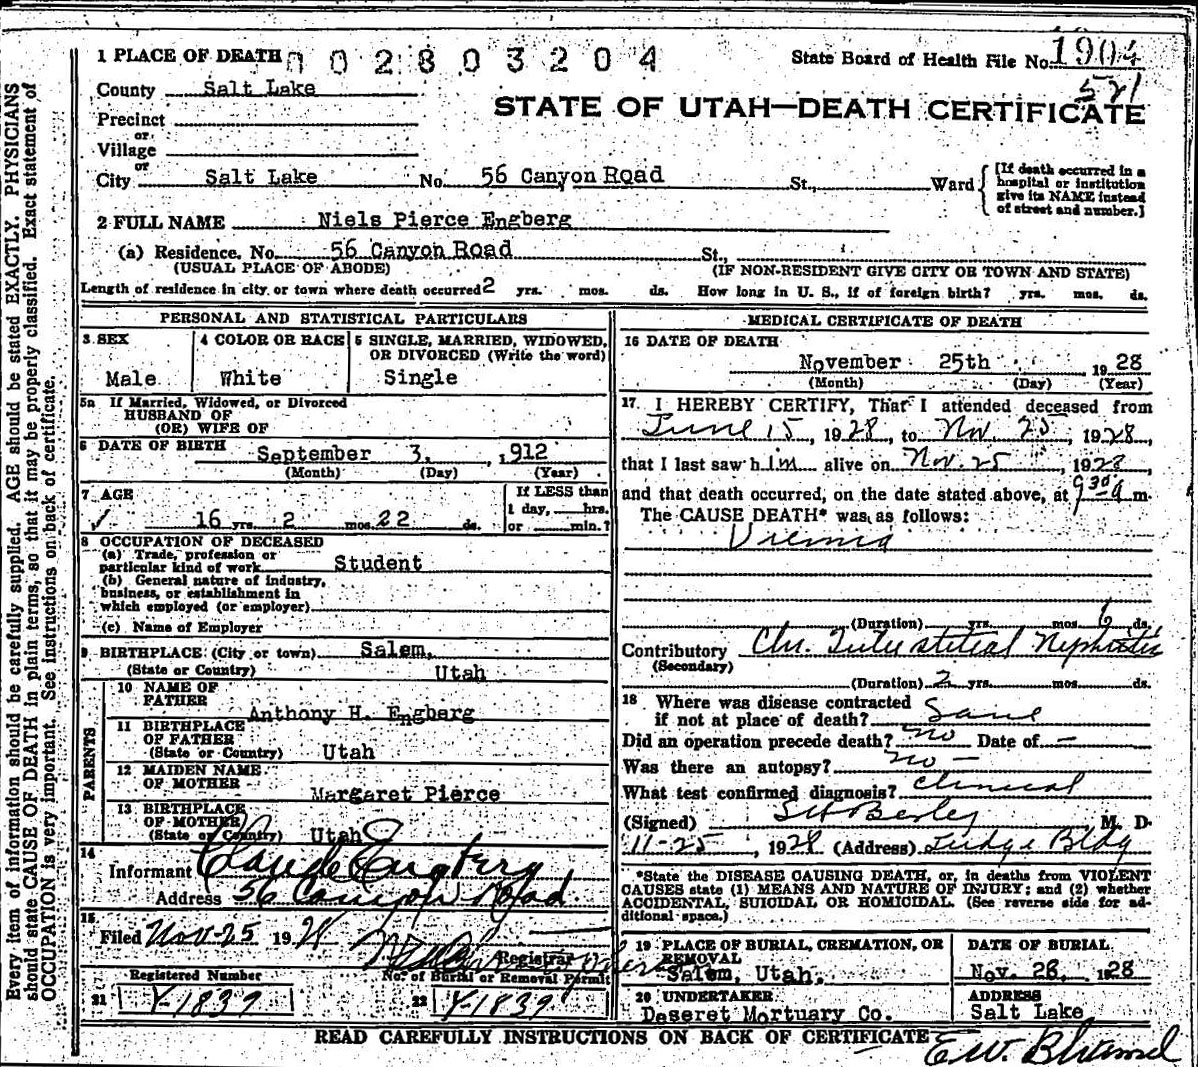 1 PLACE OF DEATH 002803204 State Board of Health File No. 1904
County Salt Lake 521
STATE OF UTAH—DEATH CERTIFICATE
Precinct
or
Village
or
City Salt Lake No. 56 Canyon Road St., Ward [If death occurred in a hospital or institution give its NAME instead of street and number.]
2 FULL NAME Niels Pierce Engberg
(a) Residence. No. 56 Canyon Road St.,
(USUAL PLACE OF ABODE) (IF NON-RESIDENT GIVE CITY OR TOWN AND STATE)
Length of residence in city or town where death occurred 2 yrs. mos. ds. How long in U. S., if of foreign birth? yrs. mos. ds.
PERSONAL AND STATISTICAL PARTICULARS
3 SEX 4 COLOR OR RACE 5 SINGLE, MARRIED, WIDOWED,
OR DIVORCED (Write the word)
Male White Single
5a If Married, Widowed, or Divorced
HUSBAND OF
(OR) WIFE OF
6 DATE OF BIRTH September 3, ,912
(Month) (Day) (Year)
7 AGE If LESS than
1 day, hrs.
16 yrs. 2 mos. 22 ds. or min.?
8 OCCUPATION OF DECEASED
(a) Trade, profession or
particular kind of work Student
(b) General nature of industry,
business, or establishment in
which employed (or employer)
(c) Name of Employer
9 BIRTHPLACE (City or town) Salem,
(State or Country) Utah
PARENTS
10 NAME OF
FATHER Anthony H. Engberg
11 BIRTHPLACE
OF FATHER
(State or Country) Utah
12 MAIDEN NAME
OF MOTHER Margaret Pierce
13 BIRTHPLACE
OF MOTHER
(State or Country) Utah
14
Informant Claude Engberg
Address 56 Canyon Road
15
Filed Nov-25 1928
Registrar
Registered Number No. of Burial or Removal Permit
21 Y-1839 22 Y-1839
MEDICAL CERTIFICATE OF DEATH
16 DATE OF DEATH
November 25th 1928
(Month) (Day) (Year)
17 I HEREBY CERTIFY, That I attended deceased from
June 15, 1928, to Nov 25, 1928,
that I last saw him alive on Nov. 25, 1928,
and that death occurred, on the date stated above, at 9 30 a m.
The CAUSE DEATH* was as follows:
Uremia
(Duration) yrs. mos. 6 ds.
Contributory Chr. Interstitial Nephritis
(Secondary)
(Duration) 2 yrs. mos. ds.
18 Where was disease contracted
if not at place of death? Same
Did an operation precede death? no Date of —
Was there an autopsy? no —
What test confirmed diagnosis? Clinical
(Signed) M. D.
11-25, 1928 (Address) Judge Bldg
*State the DISEASE CAUSING DEATH, or, in deaths from VIOLENT
CAUSES state (1) MEANS AND NATURE OF INJURY; and (2) whether
ACCIDENTAL, SUICIDAL OR HOMICIDAL. (See reverse side for ad-
ditional space.)
19 PLACE OF BURIAL, CREMATION, OR DATE OF BURIAL
REMOVAL
Salem, Utah. Nov. 28, 1928
20 UNDERTAKER ADDRESS
Deseret Mortuary Co. Salt Lake
READ CAREFULLY INSTRUCTIONS ON BACK OF CERTIFICATE
E.W.
Every item of information should be carefully supplied. AGE should be stated EXACTLY. PHYSICIANS
should state CAUSE OF DEATH in plain terms, so that it may be properly classified. Exact statement of
OCCUPATION is very important. See instructions on back of certificate.